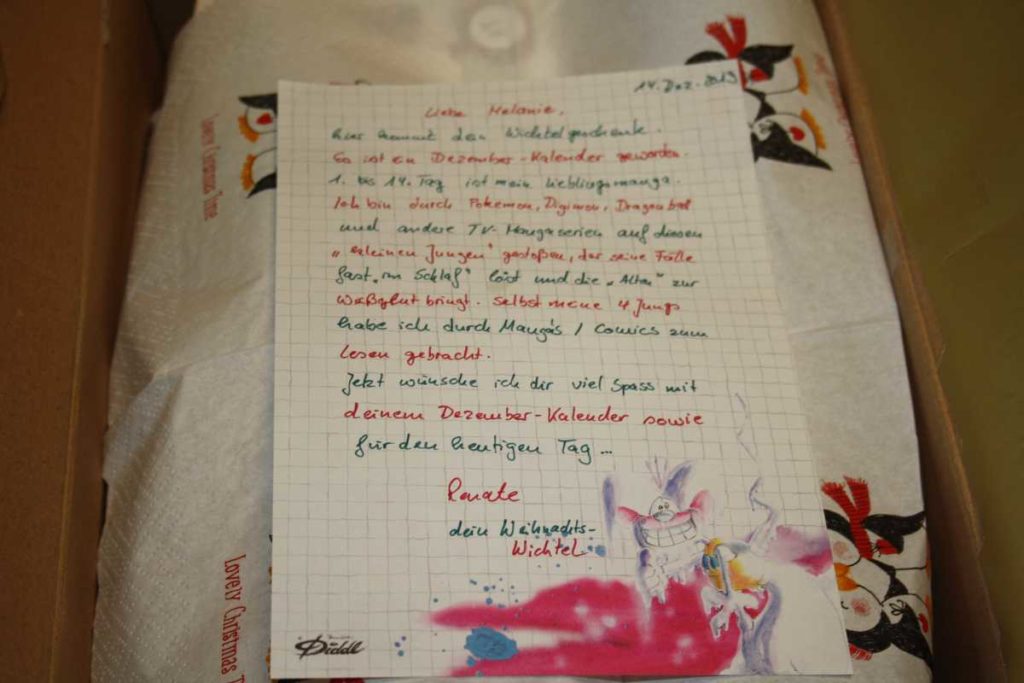 14. Dez. 2013
Liebe Melanie,
hier kommt dein Wichtelgeschenk.
Es ist ein Dezember-Kalender geworden.
1. bis 14. Tag ist mein Lieblingsmanga.
Ich bin durch Pokemon, Digimon, Dragonball
und andere TV-Mangaserien auf diesen
"kleinen Jungen" gestoßen, der seine Fälle
fast "im Schlaf" löst und die "Alten" zur
Weißglut bringt. Selbst meine 4 Jungs
habe ich durch Manga's / Comics zum
Lesen gebracht.
Jetzt wünsche ich dir viel Spass mit
deinem Dezember-Kalender sowie
für den heutigen Tag ...
Renate
dein Weihnachts-
Wichtel
Diddl
Lovely Christmas Time
Lovely Christmas T